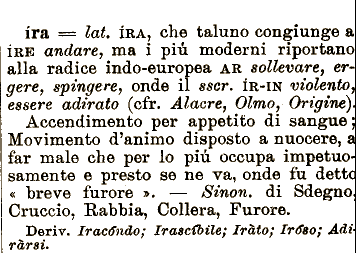 íra = lat. ÍRA, che taluno congiunge a
ÍRE andare, ma i piú moderni riportano
alla radice indo-europea AR sollevare, er-
gere, spingere, onde il sscr. ÍR-IN violento,
essere adirato (cfr. Alacre, Olmo, Origine).
Accendimento per appetito di sangue;
Movimento d'animo disposto a nuocere, a
far male che per lo piú occupa impetuo-
samente e presto se ne va, onde fu detto
« breve furore ». — Sinon. di Sdegno,
Cruccio, Rabbia, Collera, Furore.
Deriv. Iracóndo; Irascíbile; Iràto; Iróso; Adi-
ràrsi.